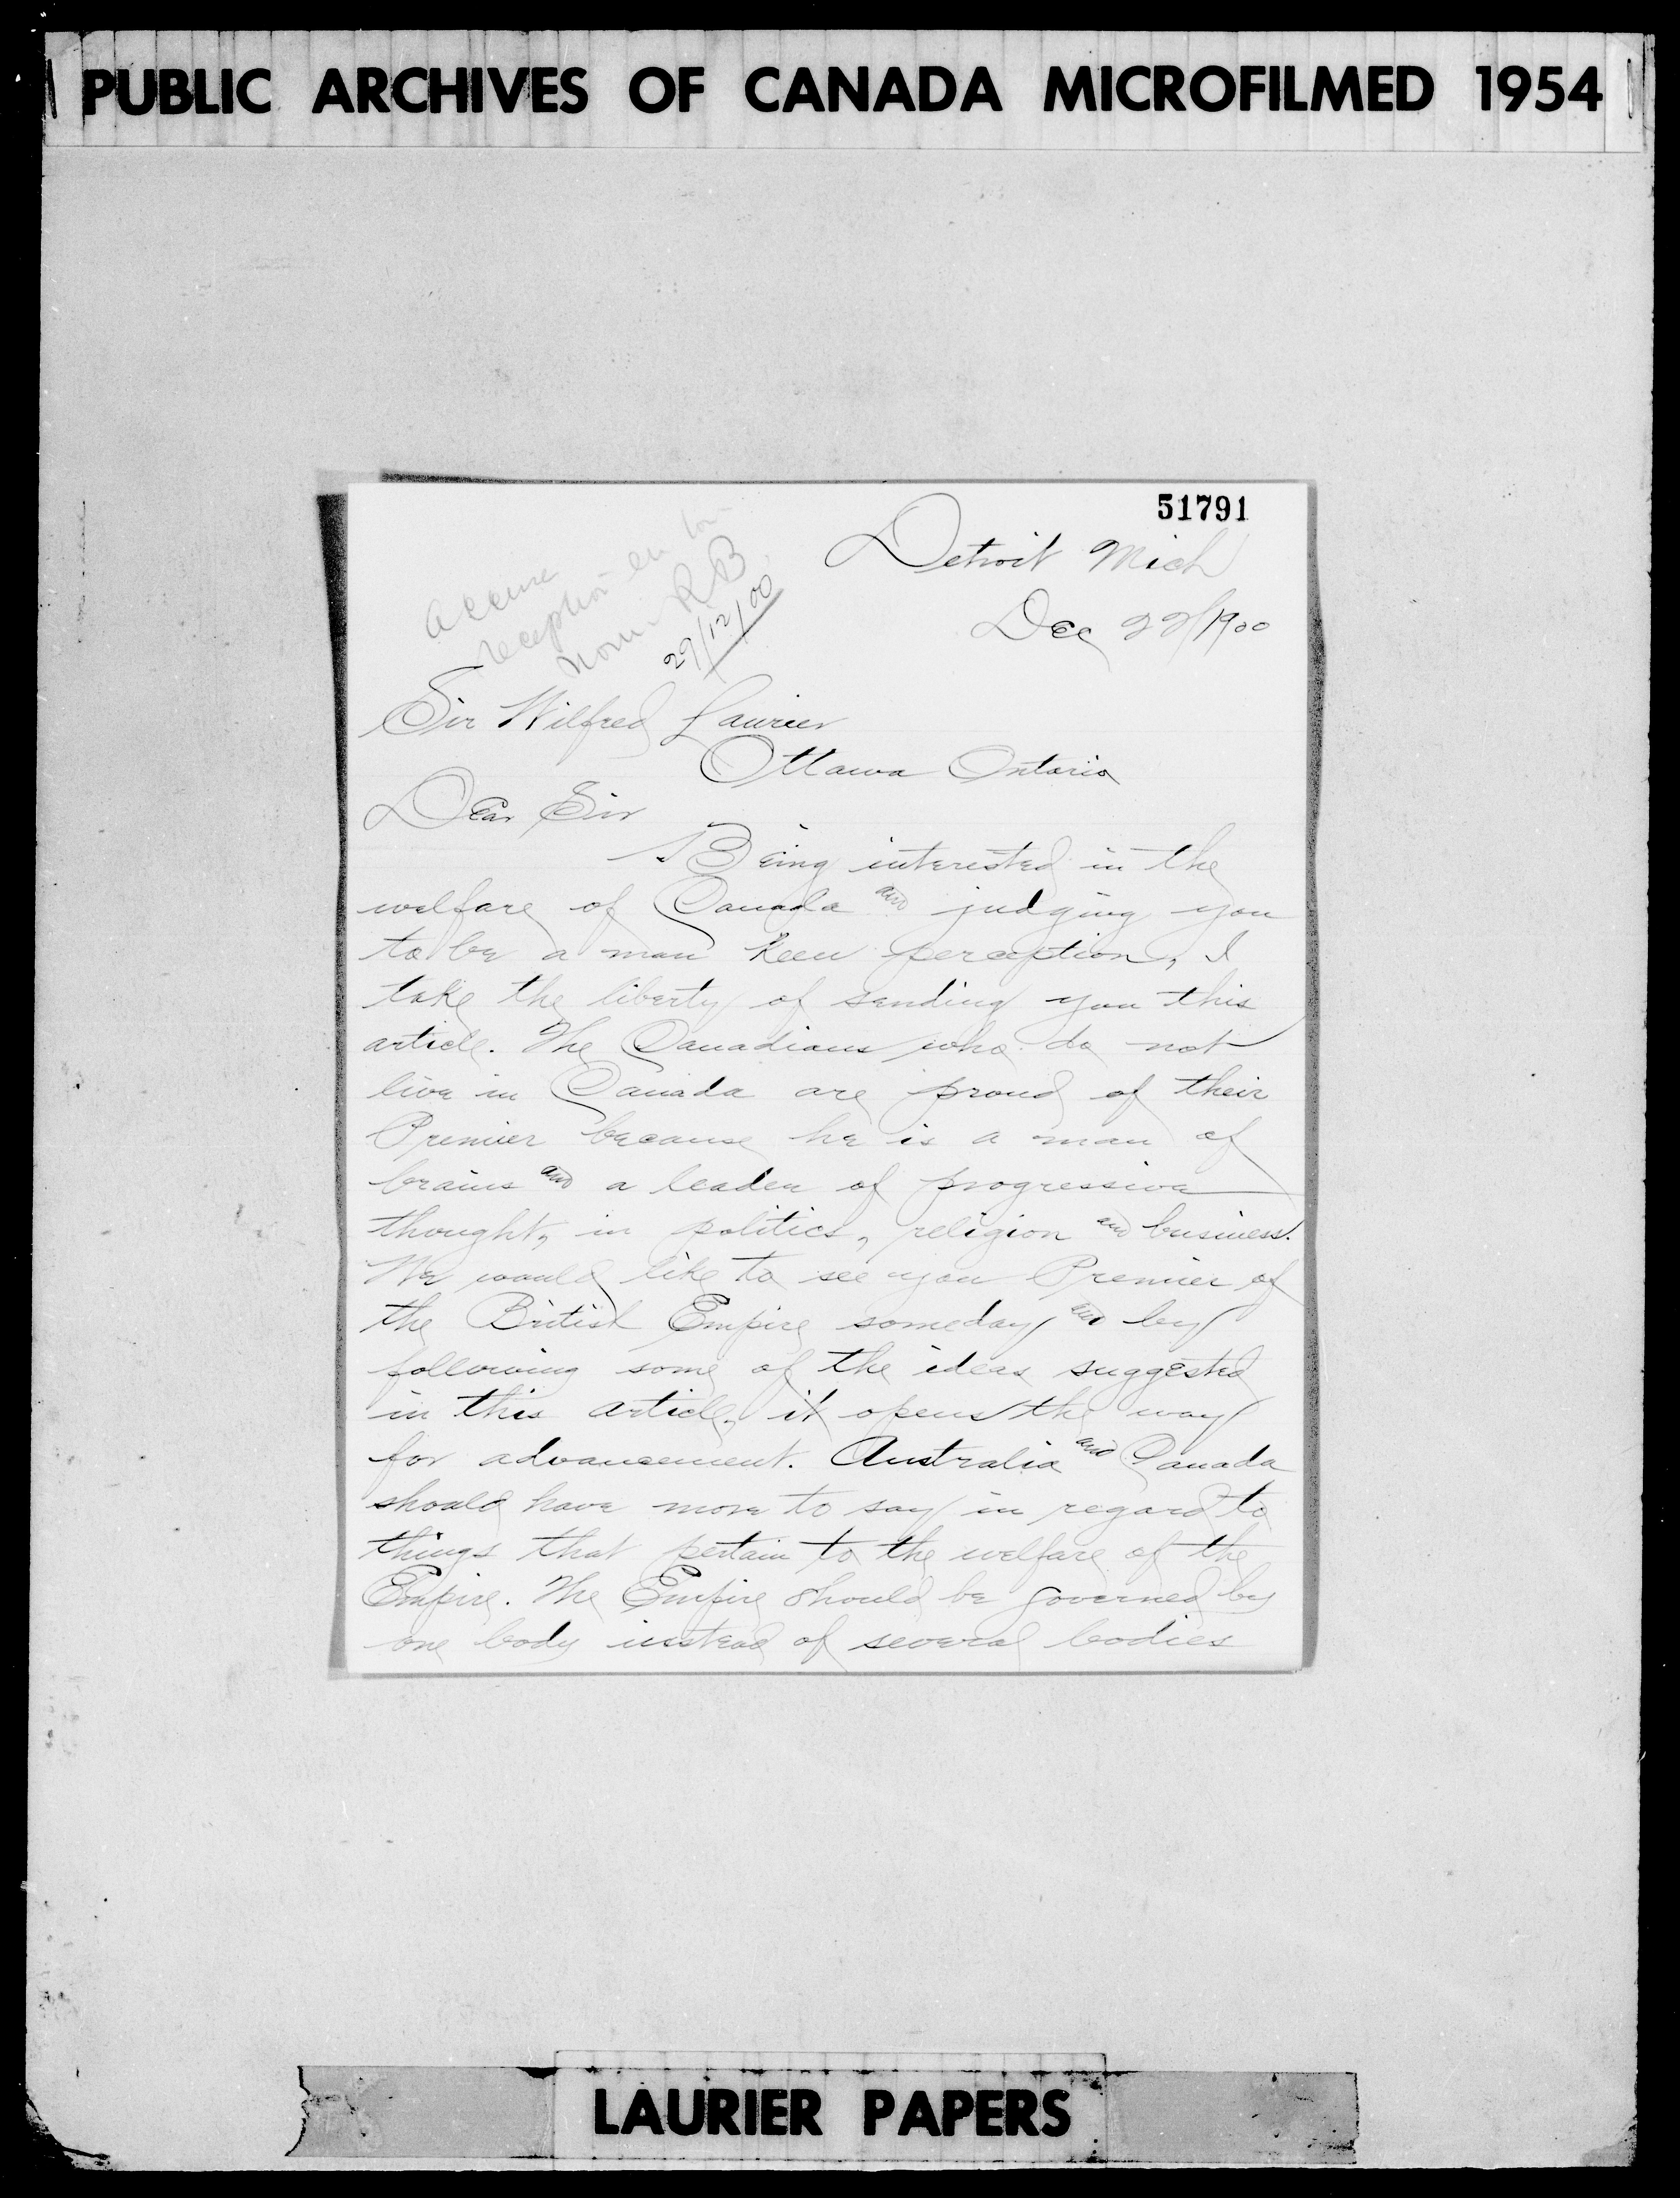 PUBLIC ARCHIVES OF CANADA MICROFILMED 1954
51791
Detroit Mich
Dec 22/1900
accuse
reception en
nom RB
27/12/00
Sir Wilfred Laurier
Ottawa Ontario
Dear Sir
Being interested in the
welfare of Canada and judging you
to be a man keen perception, I
take the liberty of sending you this
article. The Canadians who do not
live in Canada are proud of their
Premier because he is a man of
brains and a leader of progressive
thought, in politics, religion and business.
We would like to see you Premier of
the British Empire someday and by
following some of the ideas suggested
in this article, it opens the way
for advancement. Australia and Canada
should have more to say in regard to
things that pertain to the welfare of the
Empire. The Empire should be governed by
one body instead of several bodies
LAURIER PAPERS